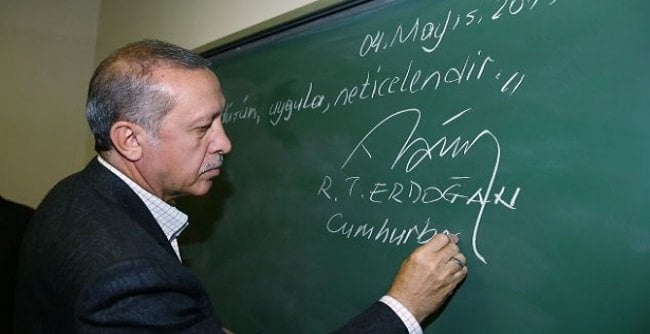 04. Mayıs.
uygula, neticelendir."
R.T. ERDOĞAN
Cumhurba